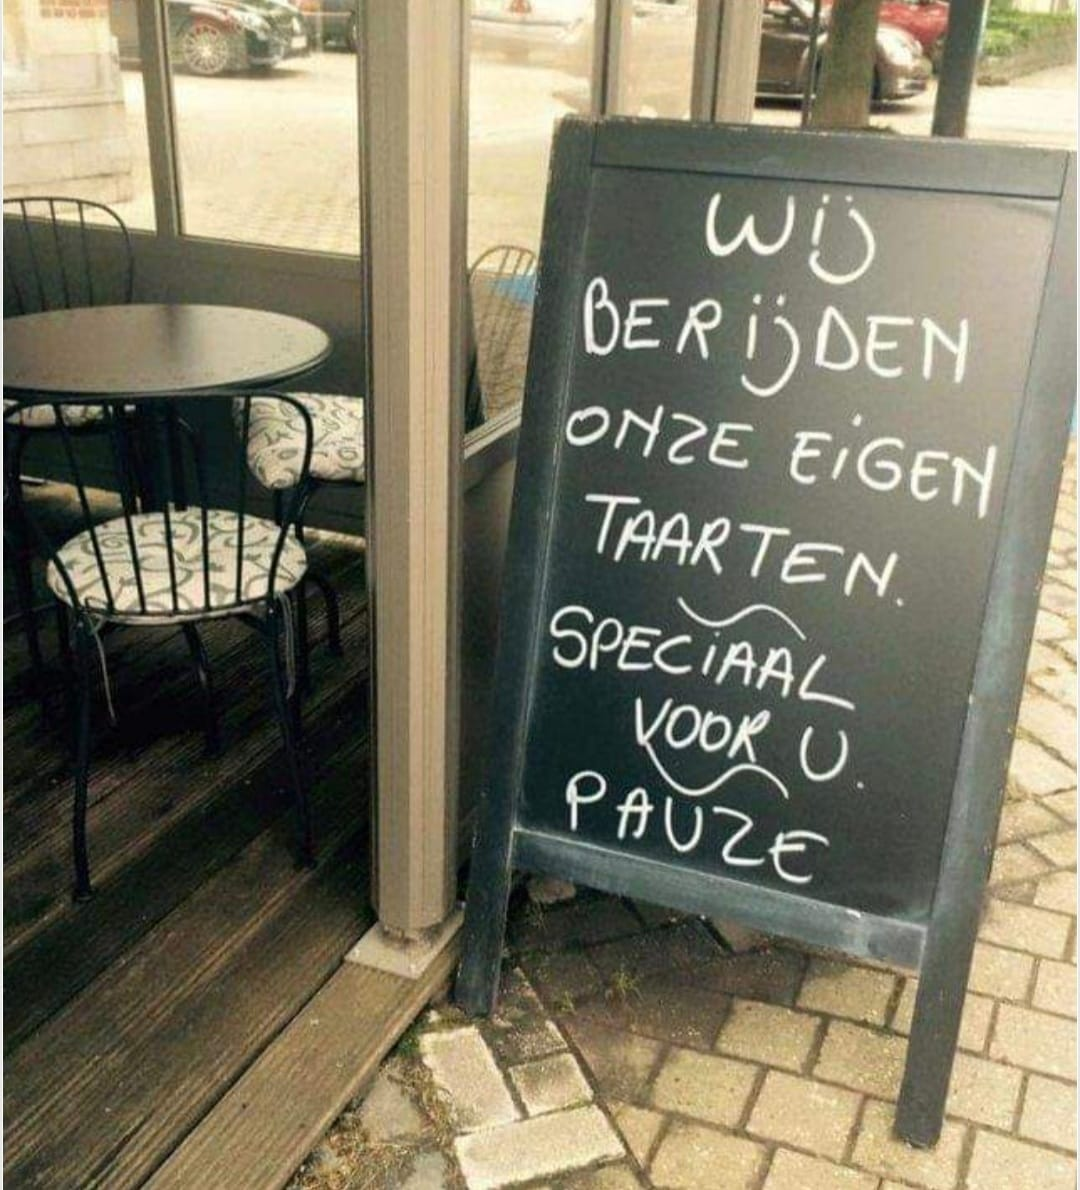 Wij
BERijDEN
ONZE EiGEN
TAARTEN.
SPECiAAL
VOOR U.
PAUZE